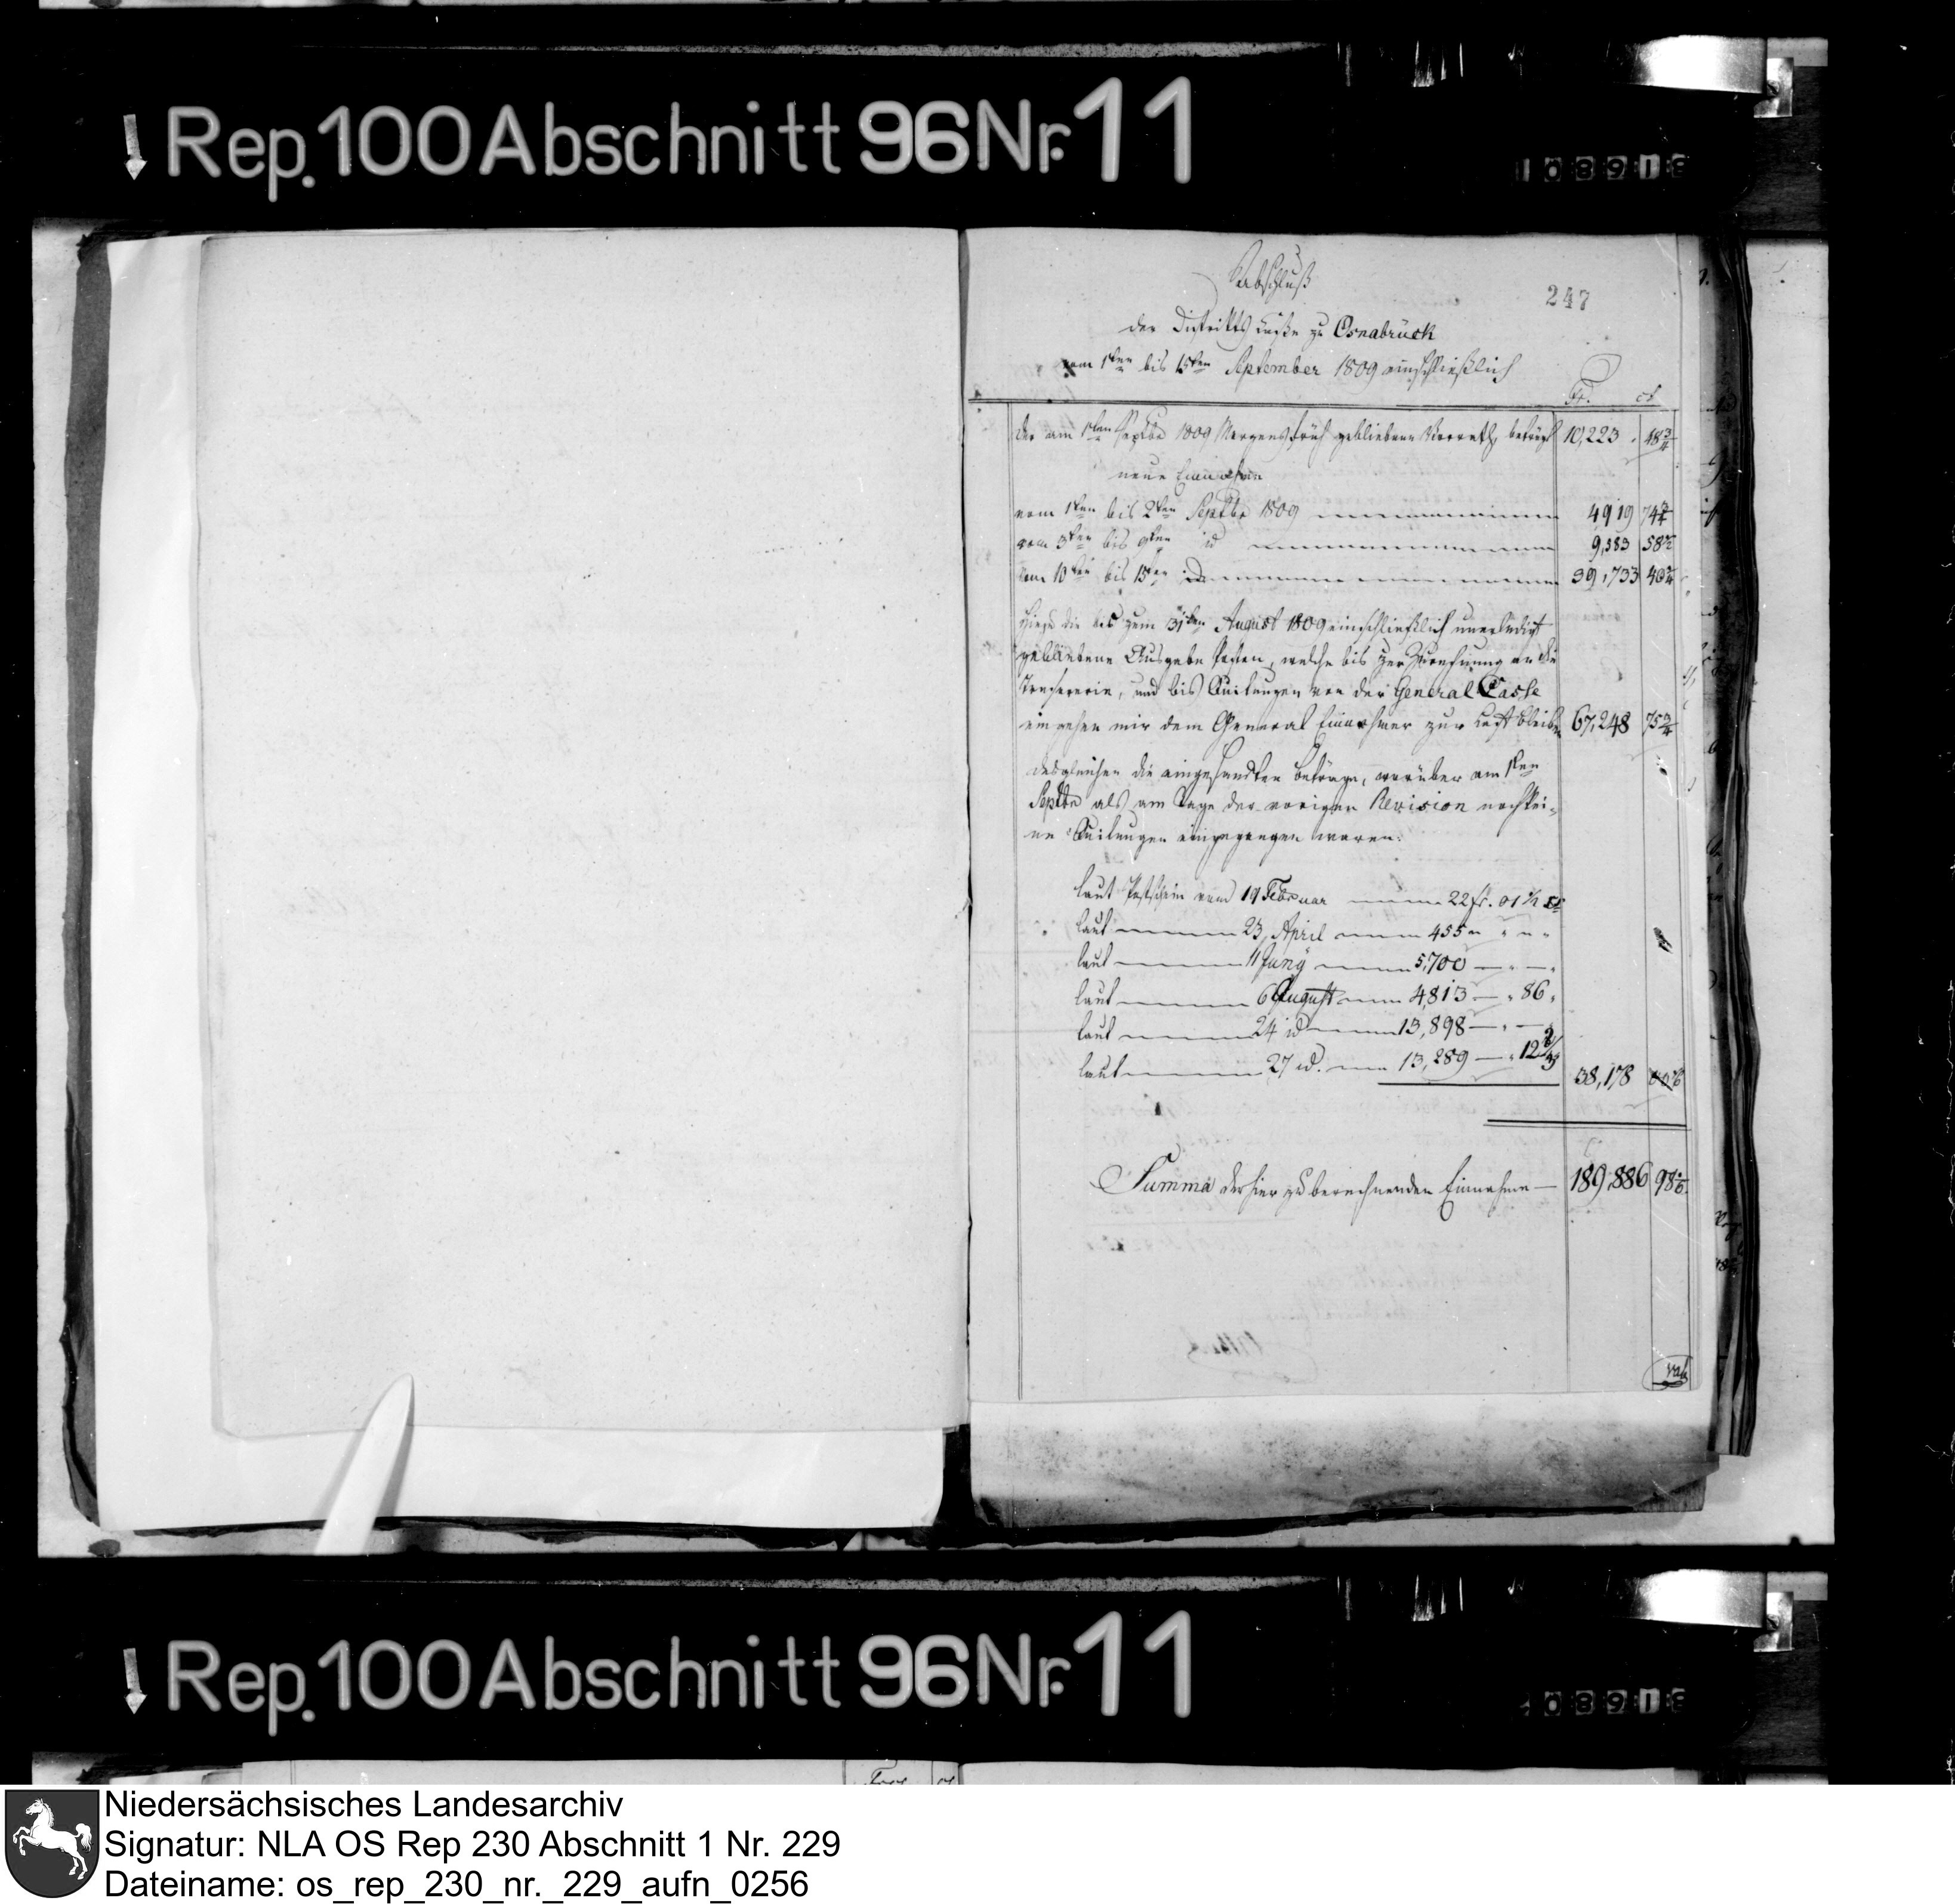 Rep. 100 Abschnitt 96 Nr. 11
108918
Abschluß
247
der Distrikts Casse zu Osnabrück
vom 1ten bis 15ten September 1809 einschließlich
Fr. ct
Der am 1ten Septbr 1809 Morgens früh gebliebene Vorrath, beträgt 10,223 . 48 3/4
neue Einnahme
vom 1ten bis 2ten Septbr 1809 4919 74
vom 3ten bis 9ten id 9,583 58
vom 10ten bis 15ten id 59,733 40
Hiezu die bis zum 31ten August 1809 einschließlich unerledigt
gebliebene Ausgabe Posten, welche bis zur Zurechnung an die
und bis Quitungen von der General Casse
eingehen mir dem General Einnehmer zur Last bleiben 67,248 75 3/4
desgleichen die eingesandten Beträge, worüber am 1ten
Septbr als am Tage der vorigen Revision noch kei-
ne Quitungen eingegangen waren:
laut Postschein vom 19 Februar 22 fr. 01 1/2 ct
laut 23 April 455
laut 11 Juny 5,700
laut 6 August 4,813 86
laut 24 id 13,898
laut 27 id. 13,289 12
38,178
Summa der hier zu berechnenden Einnahme 189,886 98
Rep. 100 Abschnitt 96 Nr. 11
08918
Niedersächsisches Landesarchiv
Signatur: NLA OS Rep 230 Abschnitt 1 Nr. 229
Dateiname: os_rep_230_nr._229_aufn_0256